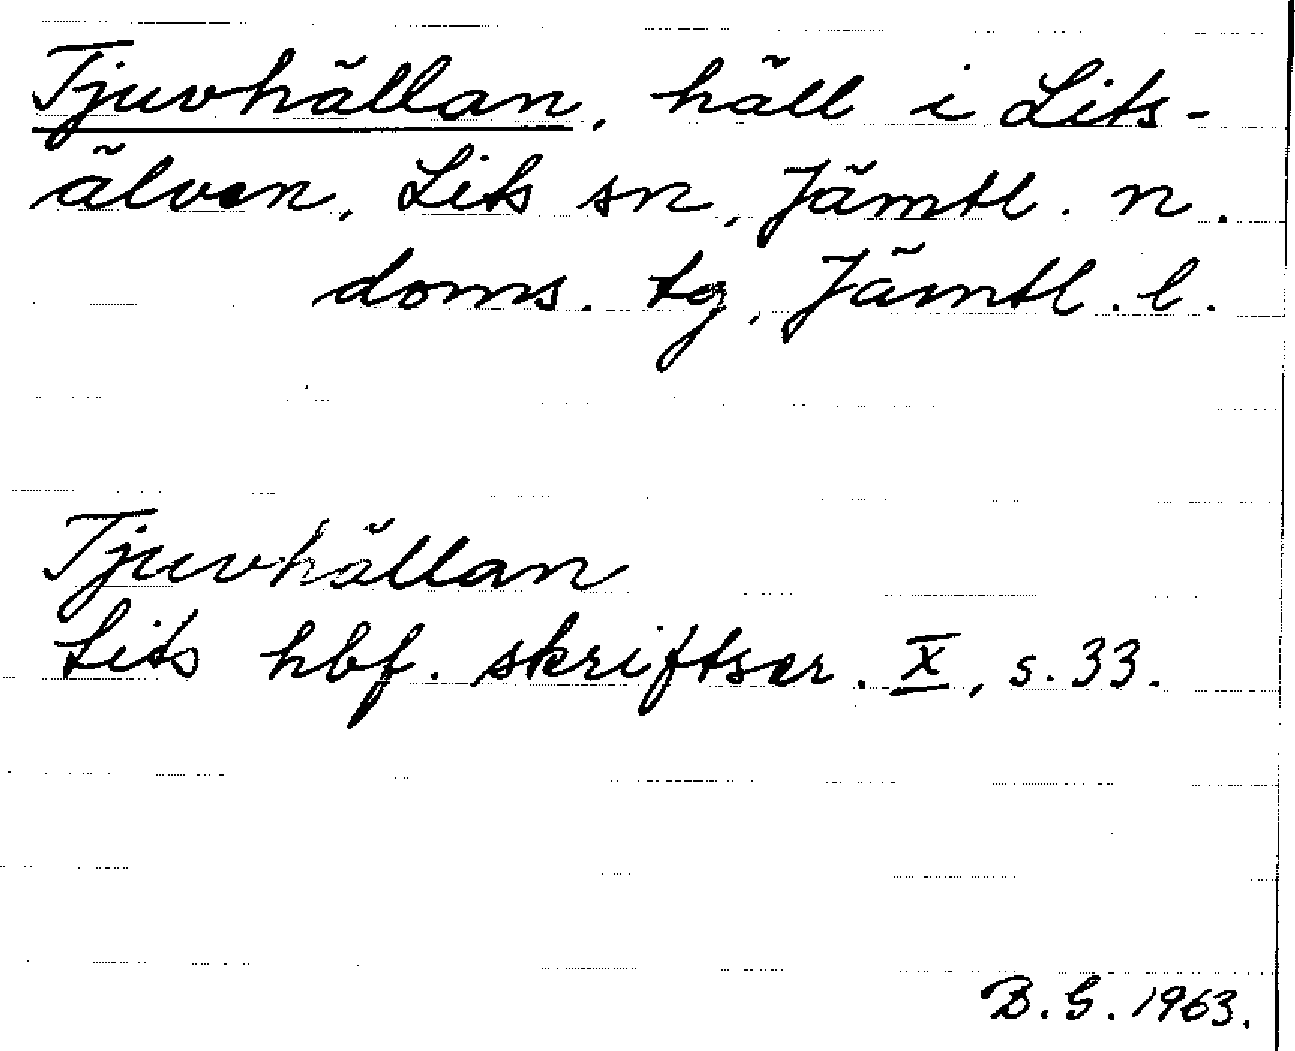 Tjuvhällan, häll i Lits-
älven, Lits sn, Jämtl. n.
doms. tg, Jämtl. l.
Tjuvhällan
Lits hbf. skriftser. X, s. 33.
B. G. 1963.